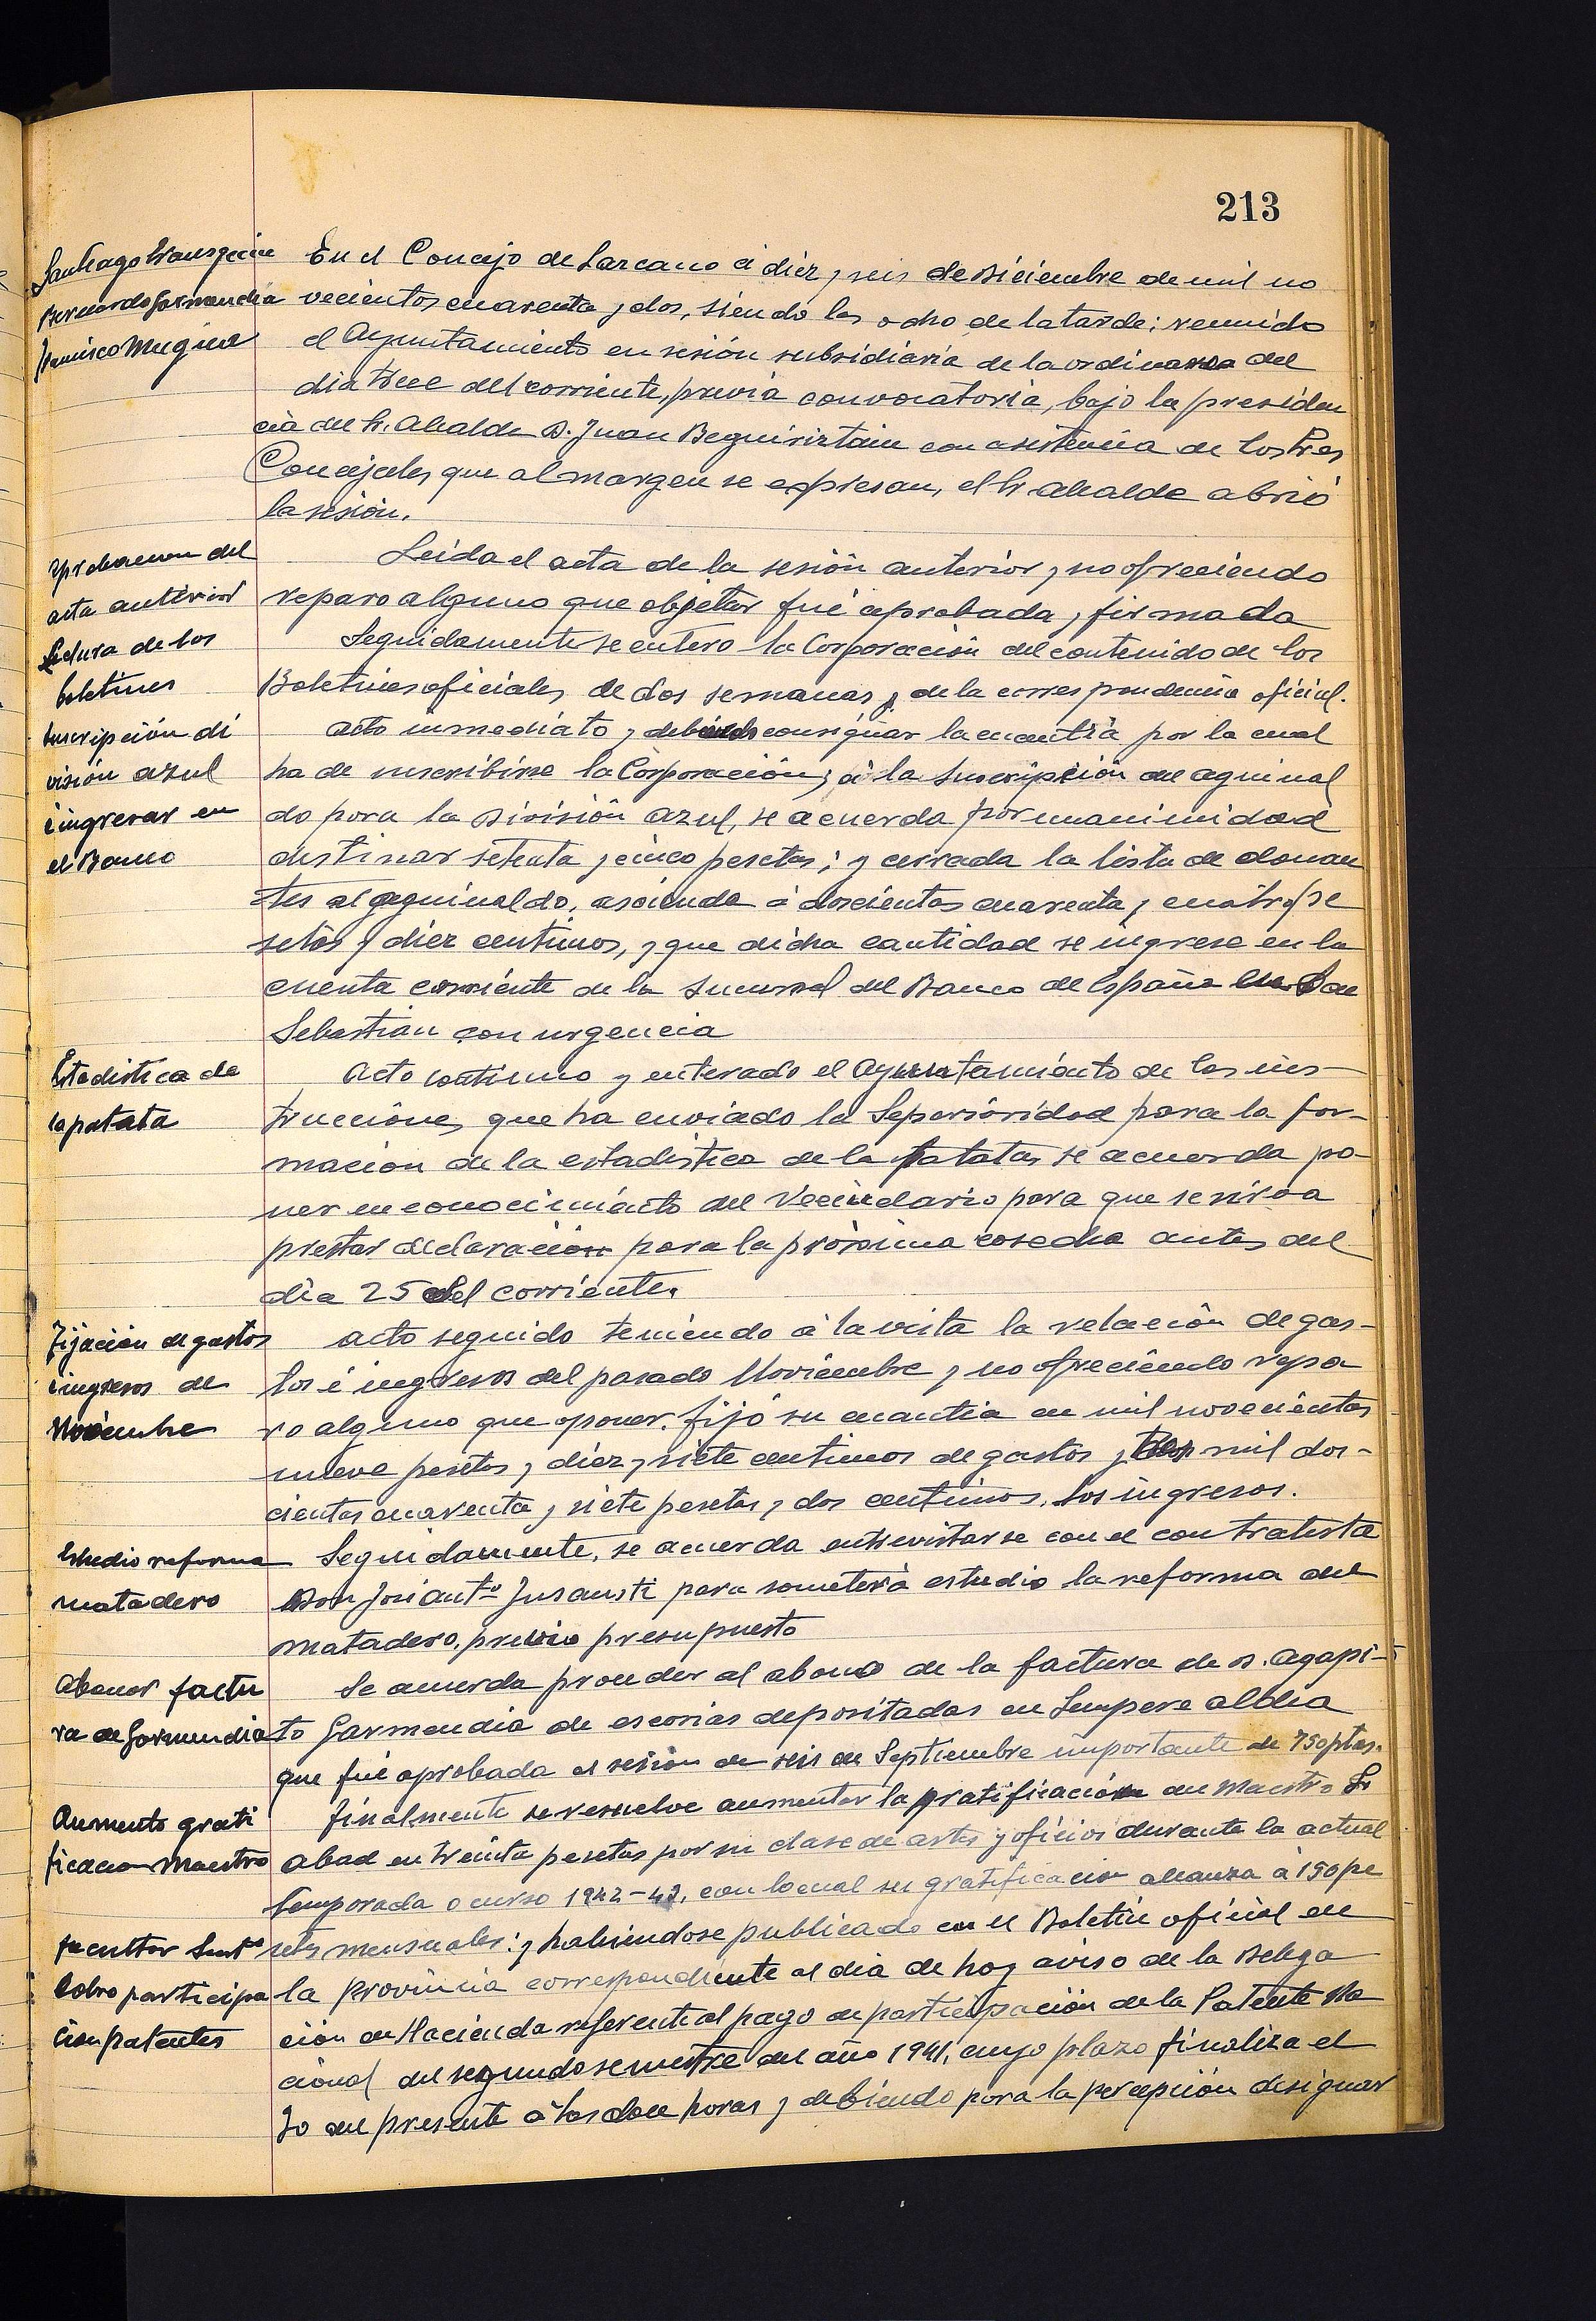 213
Santiago
Bernardo Garmendia
Francisco Mugica
En el Concejo de Lazcano á diez y seis de Diciembre de mil no
vecientos cuarenta y dos, siendo las ocho de la tarde; reunido
el Ayuntamiento en sesión subsidiaria de la ordinaria del
dia trece del corriente, previa convocatoria, bajo la presiden
cia del Sr. Alcalde D. Juan Beguiristain con asistencia de los Sres
Concejales que al margen se expresan, el Sr Alcalde abrió
la sesión.
Aprobacion del
acta anterior
Leida el acta de la sesión anterior y no ofreciendo
reparo alguno que objetar fué aprobada y firmada
Lectura de los
boletines
Seguidamente se entero la Corporación del contenido de los
Boletines oficiales de dos semanas y de la correspondencia oficial.
Suscripción di
visión azul
é ingresar en
el Banco
Acto inmediato y debiendo consignar la cuantia por la cual
ha de inscribirse la Corporación, á la Suscripción del aguinal
do para la División azul, se acuerda por unanimidad
destinar setenta y cinco pesetas; y cerrada la lista de donan
tes al aguinaldo, asciende á doscientas cuarenta y cuatro pe
setas y diez centimos, y que dicha cantidad se ingrese en la
cuenta corriente de la Sucursal del Banco de España en San
Sebastián con urgencia
Estadistica de
la patata
Acto continuo y enterado el Ayuntamiento de las ins-
trucciones que ha enviado la Seperioridad para la for-
macion de la estadistica de la patatas se acuerda po-
ner en conocimiento del Vecindario para que se sirva
prestar declaración para la próxima cosecha antes del
dia 25 del corriente.
Fijación de gastos
é ingresos de
Noviembre
Acto seguido teniendo á la vista la relación de gas-
tos é ingresos del pasado Noviembre y no ofreciendo repa
ro alguno que oponer, fijó su cuantia en mil novecientas
nueve pesetas y diez y siete centimos de gastos y dos mil dos-
cientas cuarenta y siete pesetas y dos centimos, los ingresos.
Estudio reforma
matadero
Seguidamente, se acuerda entrevistarse con el contratista
Don José Antº Insausti para someter á estudio la reforma del
matadero, previo presupuesto
Abonar factu
ra de Garmendia
Se acuerda proceder al abono de la factura de D. Agapi-
to Garmendia de escorias depositadas en Sempere aldea
que fué aprobada el sesión de seis de Septiembre importante de 750 ptas.
Aumento grati
ficacion Maestro
Finalmente se resuelve aumentar la gratificación del Maestro Sr
Abad en treinta pesetas por su clase de artes y oficios durante la actual
temporada o curso 1942-43, con lo cual su gratificacion alcanza á 150 pe
setas mensuales: y habiendose publicado en el Boletin oficial de
Facultar
Cobro participa
cion patentes
la Provincia correspondiente al dia de hoy aviso de la Delega
ción de Hacienda referente al pago de participación de la Patente Na
cional del segundo semestre del año 1941, cuyo plazo finaliza el
30 del presente á las doce horas y debiendo para la percepción designar